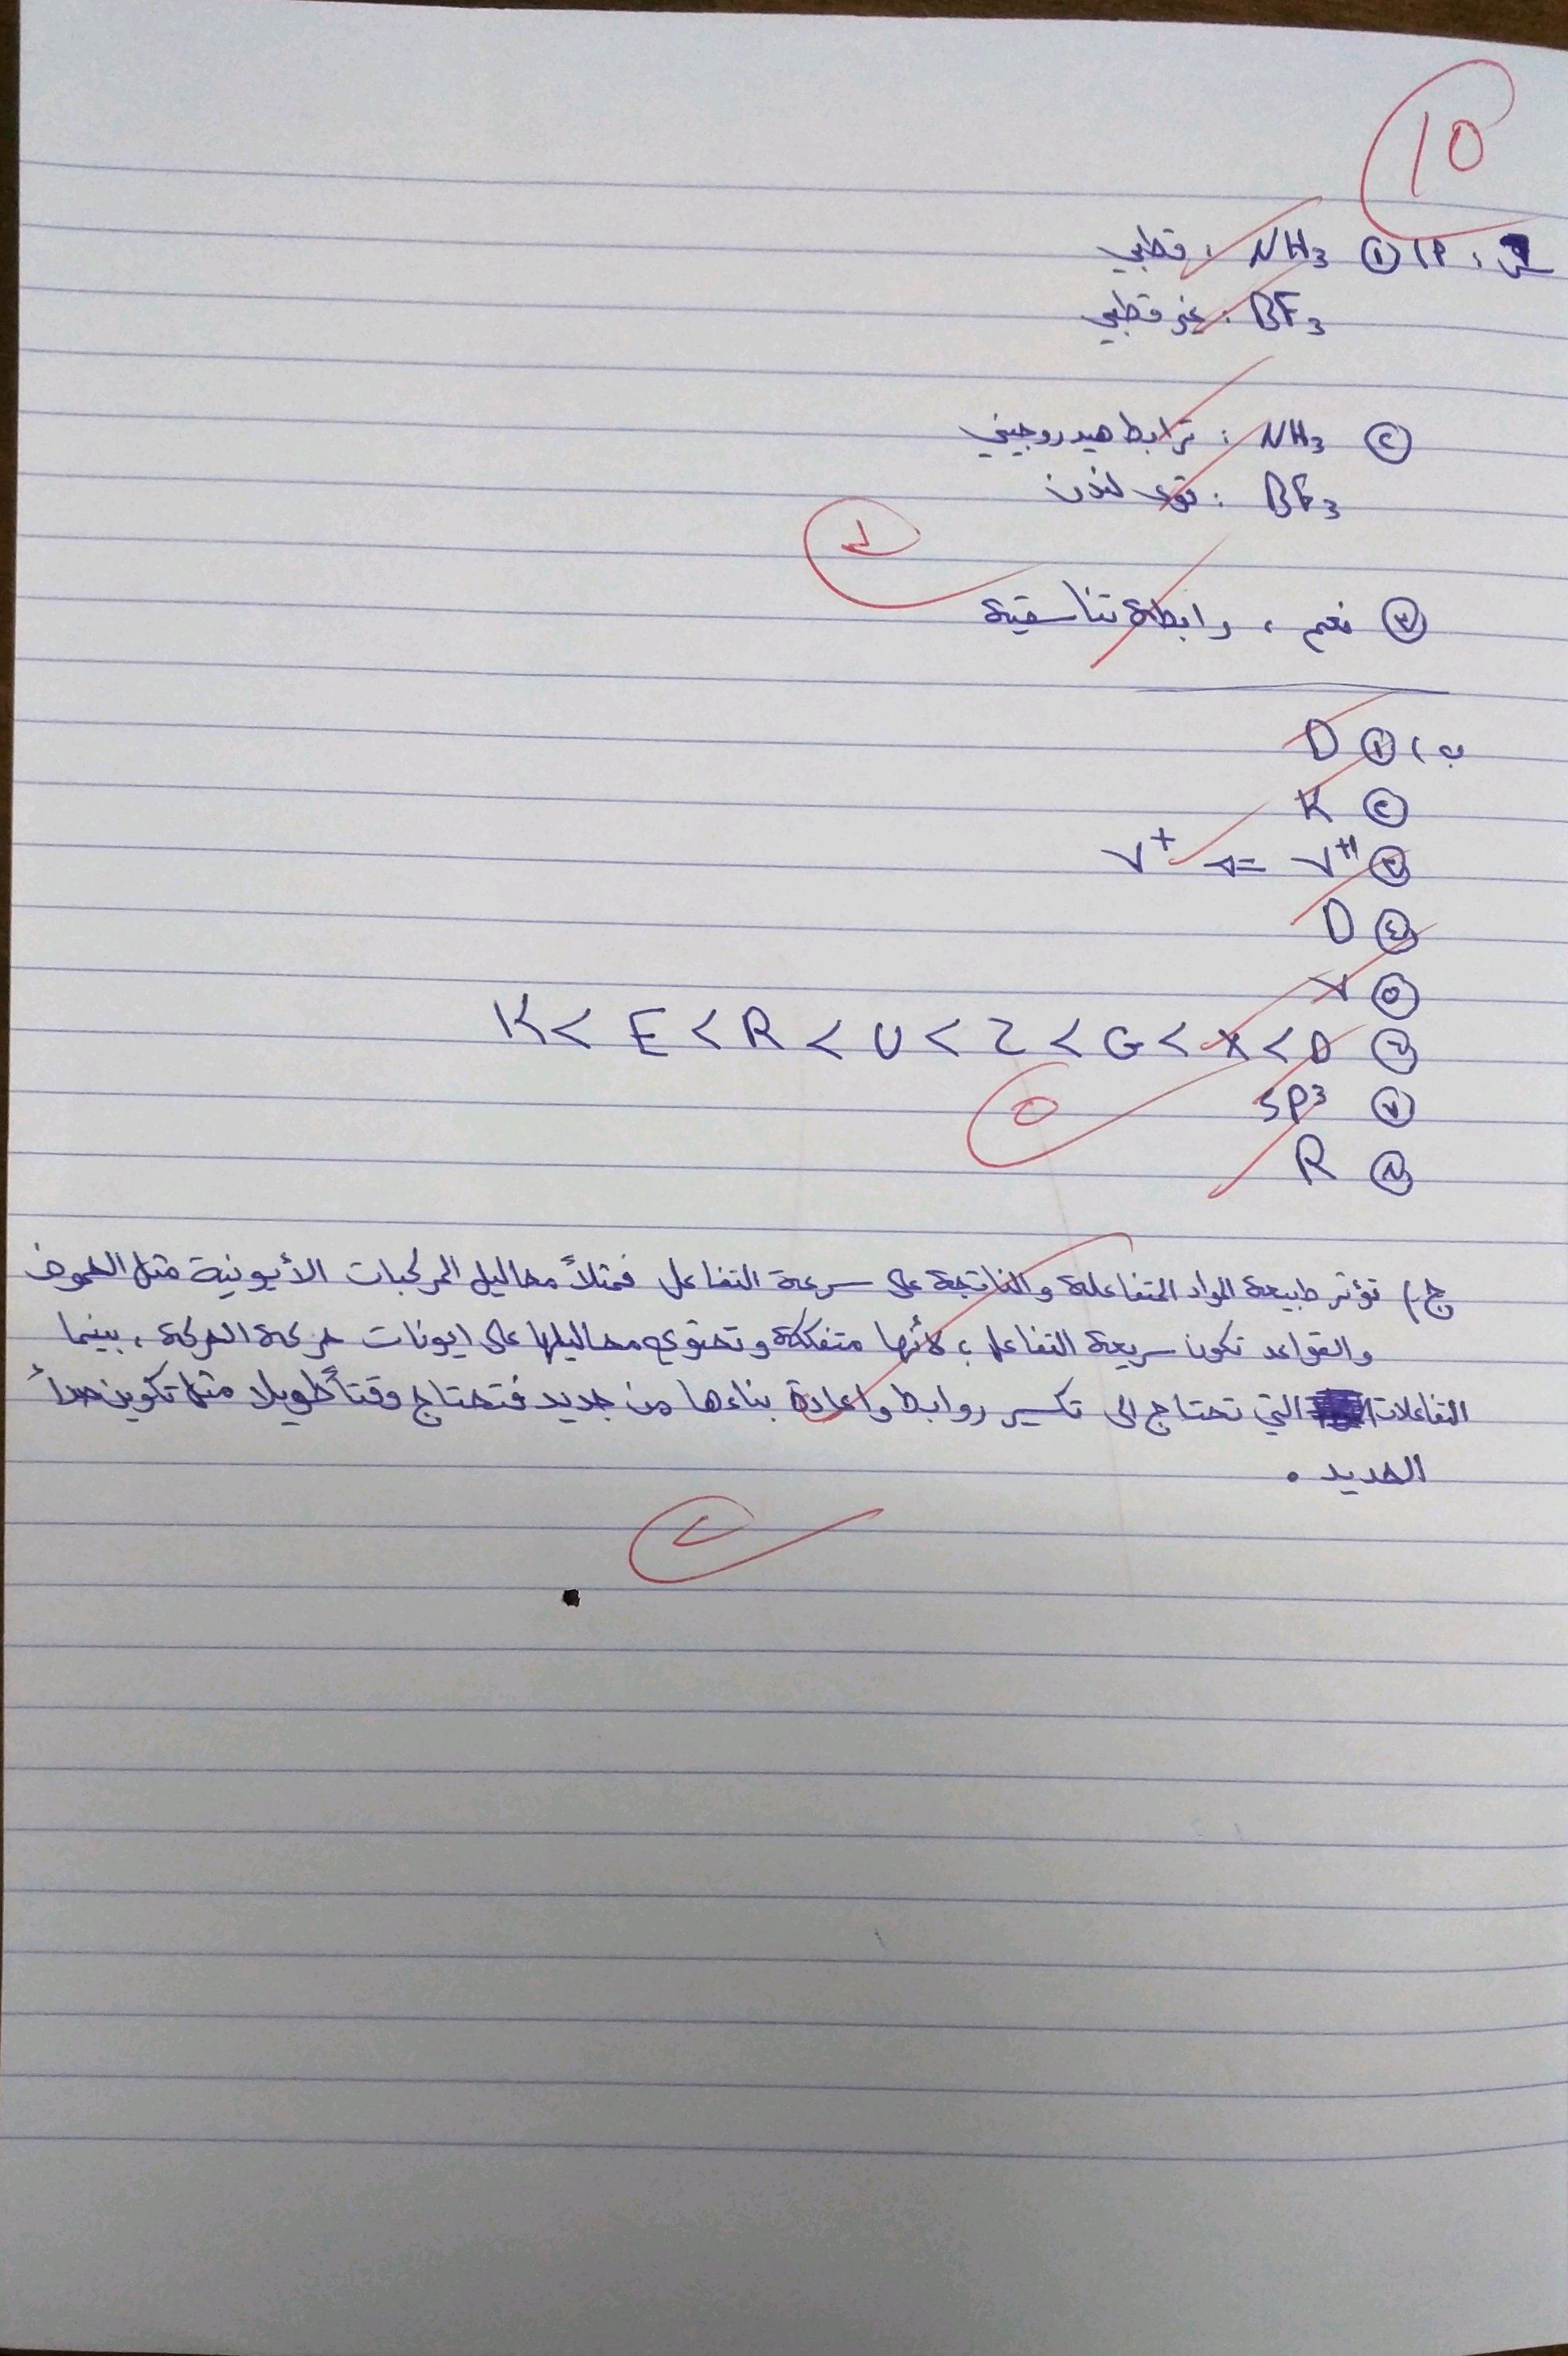 10
أ) ① NH3 : قطبي
BF3 : غير قطبي
② NH3 : ترابط هيدروجيني
BF3 : قوى لندن
③ نعم ، رابطة تناسقية
ب) ① D
② K
③ V+1 => V+
④ D
⑤
⑥ D > X > G > Z > U > R > E > K
⑦ SP3
⑧ R
ج) تؤثر طبيعة المواد المتفاعلة والناتجة على سرعة التفاعل فمثلاً محاليل المركبات الأيونية مثل الحموض
والقواعد تكون سريعة التفاعل ؛ لأنها متفككة وتحتوي محاليلها على ايونات حركة الحركة ، بينما
التفاعلات التي تحتاج الى تكسير روابط واعادة بناءها من جديد فتحتاج وقتاً طويلا مثل تكوين صدأ
الحديد .